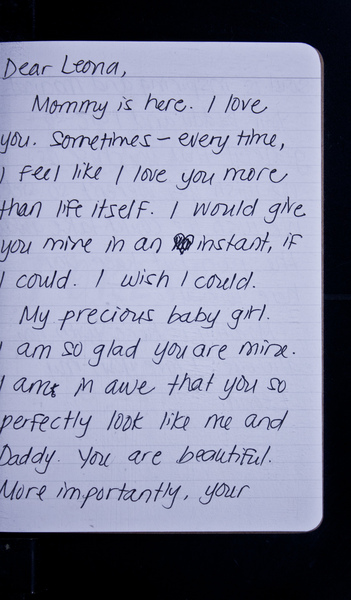 Dear Leona,
Mommy is here. I love
you. Sometimes - every time,
I feel like I love you more
than life itself. I would give
you mine in an instant, if
I could. I wish I could.
My precious baby girl.
I am so glad you are mine.
I am in awe that you so
perfectly look like me and
Daddy. You are beautiful.
More importantly, your